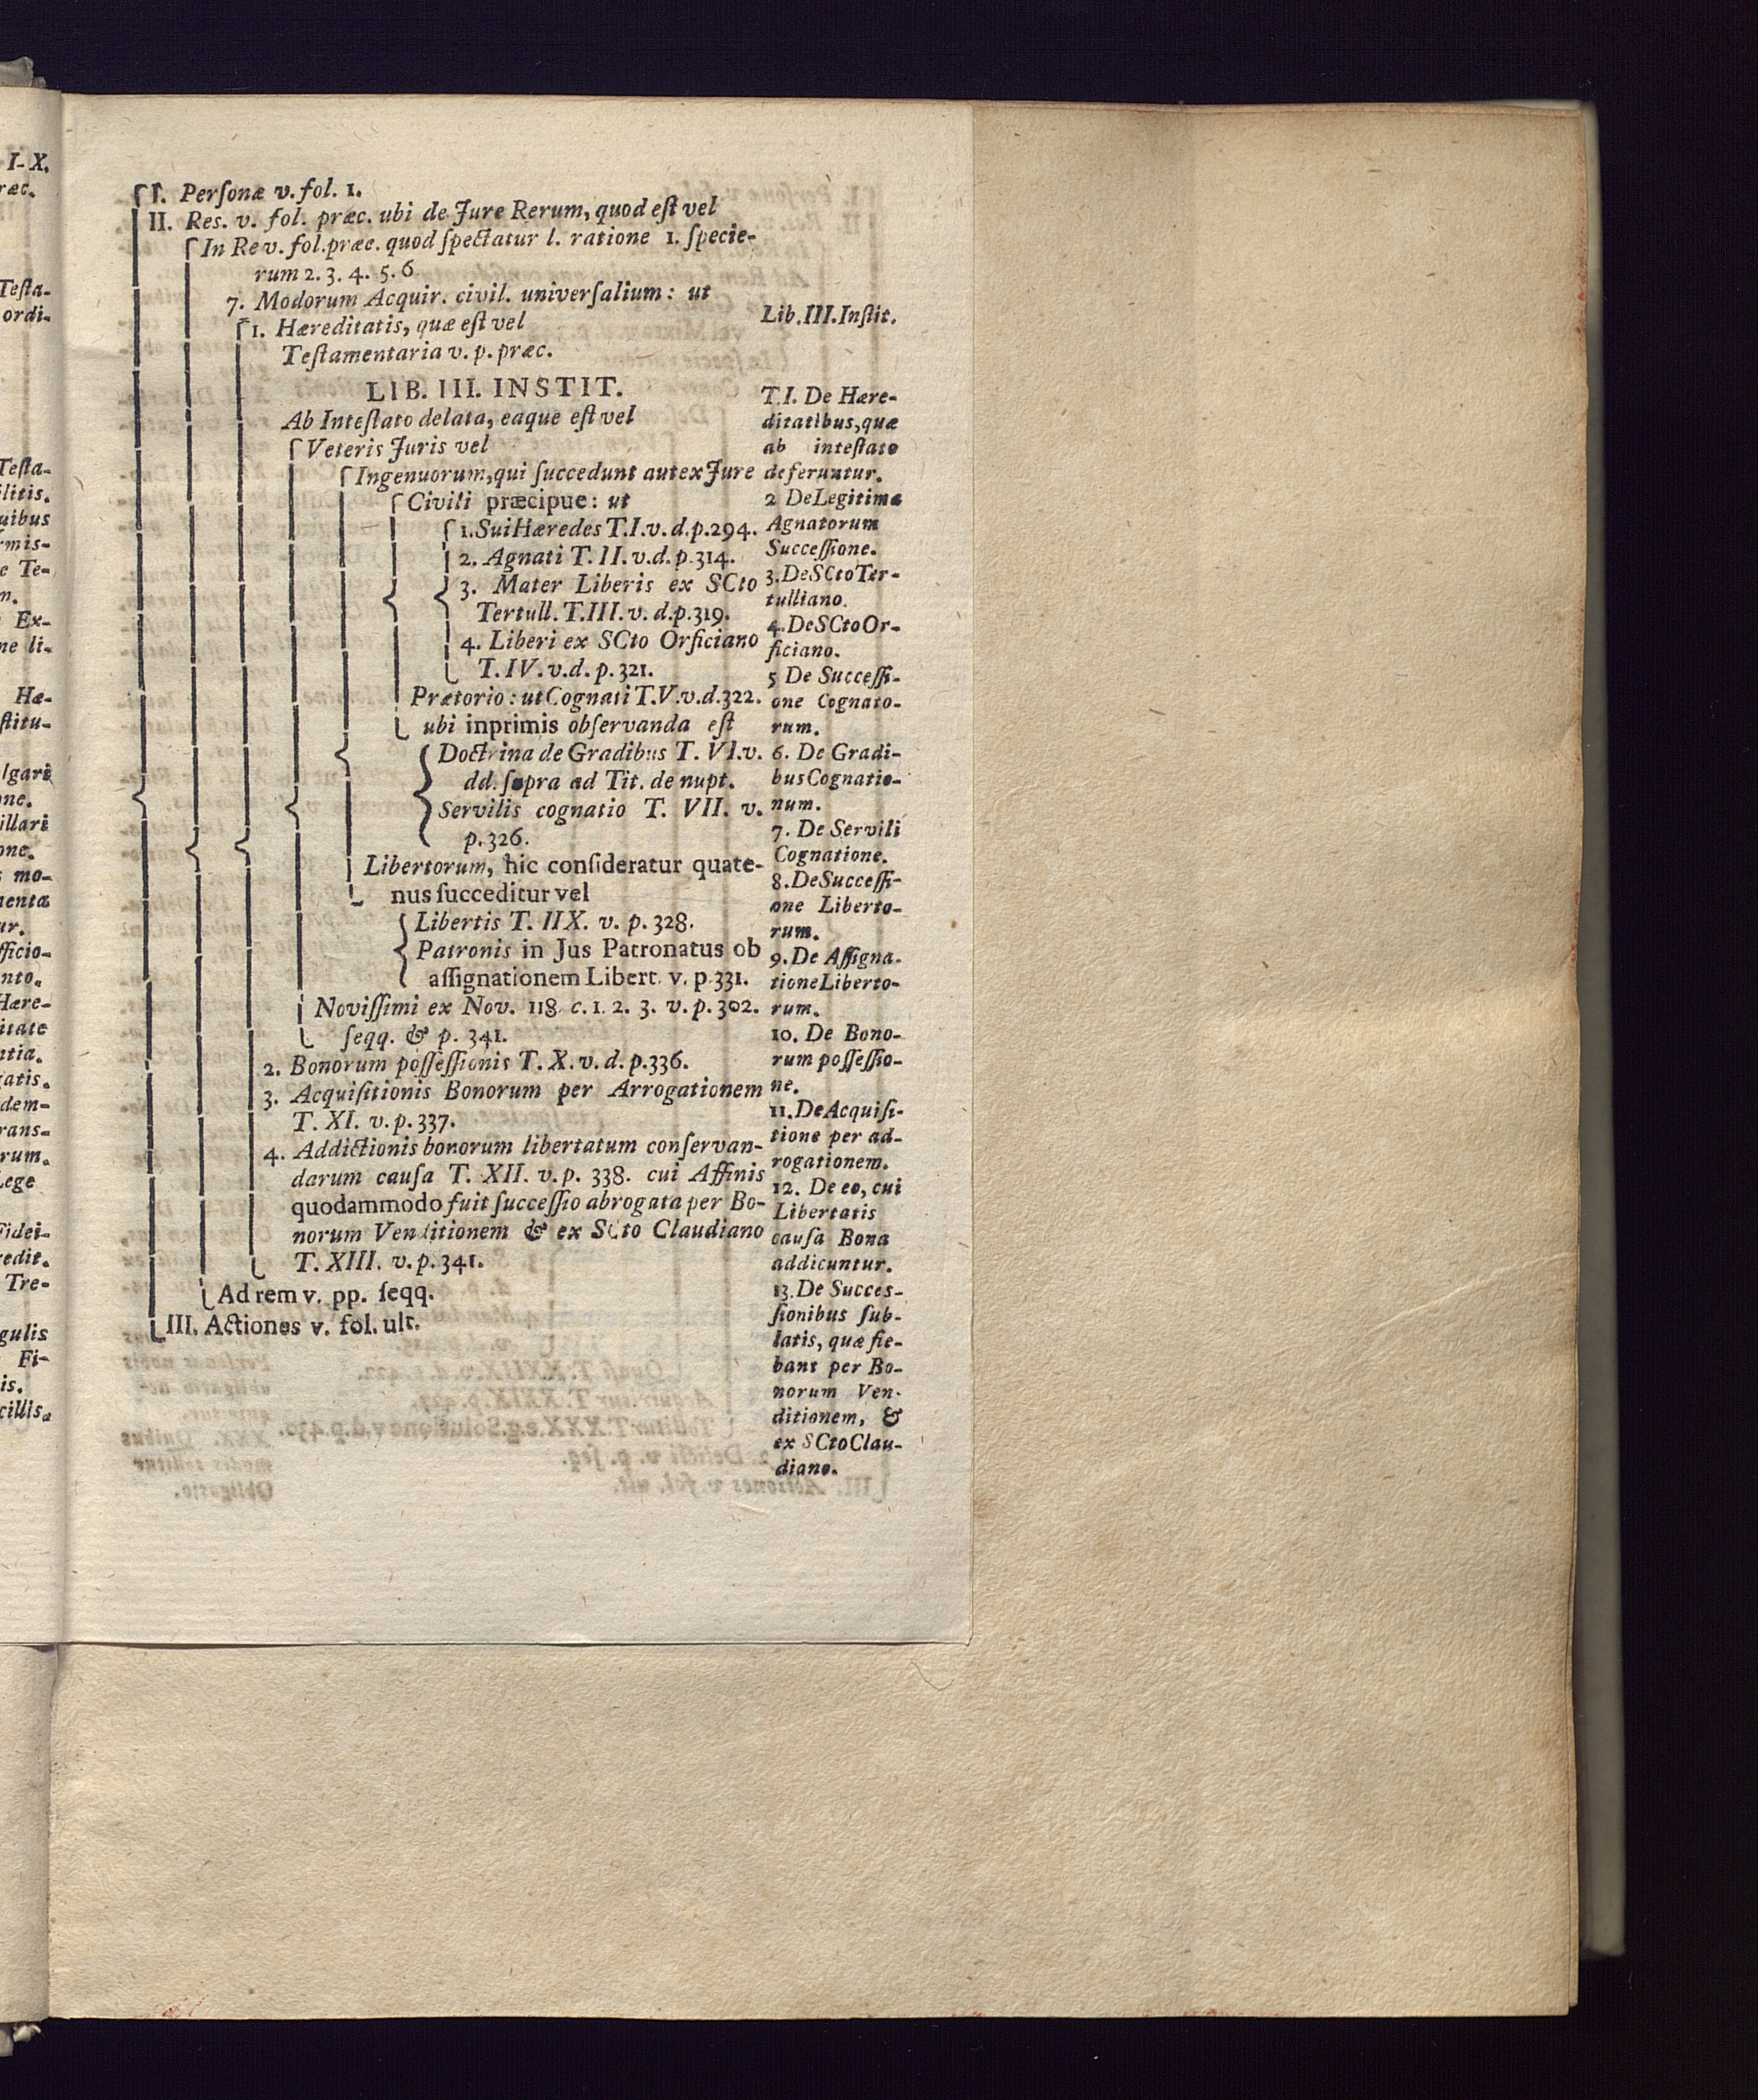 I. Perſonæ v. fol. 1.
II. Res. v. fol. præc. ubi de Jure Rerum, quod eſt vel
In Re v. fol. præc. quod ſpectatur l. ratione 1. ſpecie-
rum 2. 3. 4. 5. 6
7. Modorum Acquir. civil. univerſalium: ut
1. Hæreditatis, quæ eſt vel
Teſtamentaria v. p. præc.
LIB. III. INSTIT.
Ab Inteſtato delata, eaque eſt vel
Veteris Juris vel
Ingenuorum, qui ſuccedunt aut ex Jure
Civili præcipue: ut
1. Sui Hæredes T. I. v. d. p. 294.
2. Agnati T. II. v. d. p. 314.
3. Mater Liberis ex SCto
Tertull. T. III. v. d. p. 319.
4. Liberi ex SCto Orficiano
T. IV. v. d. p. 321.
Prætorio: ut Cognati T. V. v. d. 322.
ubi inprimis obſervanda eſt
Doctrina de Gradibus T. VI. v.
dd. ſupra ad Tit. de nupt.
Servilis cognatio T. VII. v.
p. 326.
Libertorum, hic conſideratur quate-
nus ſucceditur vel
Libertis T. IIX. v. p. 328.
Patronis in Jus Patronatus ob
aſſignationem Libert. v. p. 331.
Noviſſimi ex Nov. 118. c. 1. 2. 3. v. p. 302.
ſeqq. & p. 341.
2. Bonorum poſſeſſionis T. X. v. d. p. 336.
3. Acquiſitionis Bonorum per Arrogationem
T. XI. v. p. 337.
4. Addictionis bonorum libertatum conſervan-
darum cauſa T. XII. v. p. 338. cui Affinis
quodammodo fuit ſucceſſio abrogata per Bo-
norum Venditionem & ex SCto Claudiano
T. XIII. v. p. 341.
Ad rem v. pp. ſeqq.
III. Actiones v. fol. ult.
Lib. III. Inſtit.
T. I. De Hære-
ditatibus, quæ
ab inteſtato
deferuntur.
2 De Legitima
Agnatorum
Succeſſione.
3. De SCto Ter-
tulliano.
4. De SCto Or-
ficiano.
5 De Succeſſi-
one Cognato-
rum.
6. De Gradi-
bus Cognatio-
num.
7. De Servili
Cognatione.
8. De Succeſſi-
one Liberto-
rum.
9. De Aſſigna-
tione Liberto-
rum.
10. De Bono-
rum poſſeſſio-
ne.
11. De Acquiſi-
tione per ad-
rogationem.
12. De eo, cui
Libertatis
cauſa Bona
addicuntur.
13. De Succes-
ſionibus ſub-
latis, quæ fie-
bant per Bo-
norum Ven-
ditionem, &
ex SCto Clau-
diano.